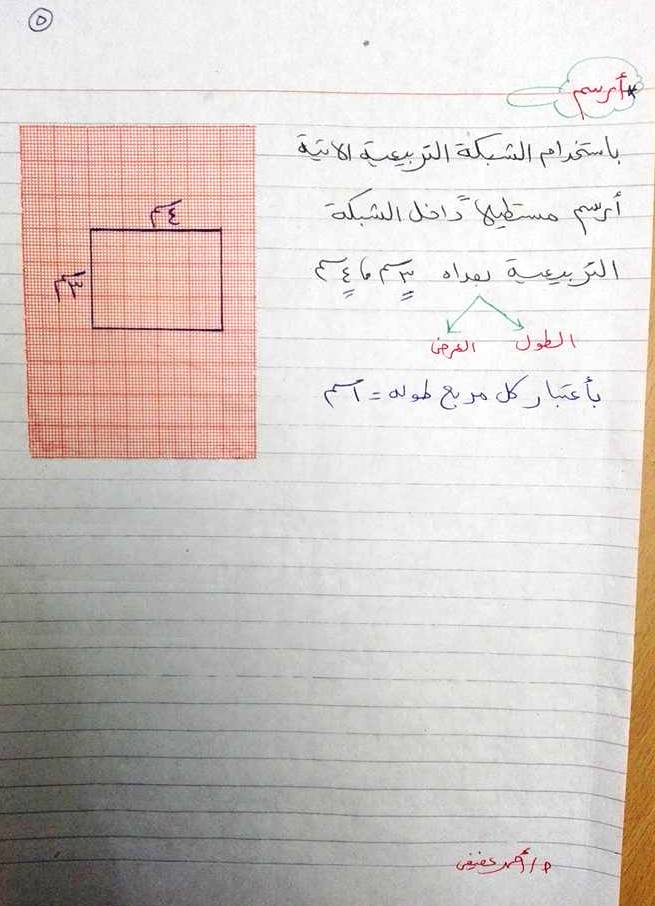 ٥
* أرسم
باستخدام الشبكة التربيعية الاتية
أرسم مستطيلاً داخل الشبكة
التربيعية بعداه ٣سم ، ٤سم
الطول العرض
بأعتبار كل مربع طوله = ١سم
٤سم
٣سم
أ/أحمد عفيفى